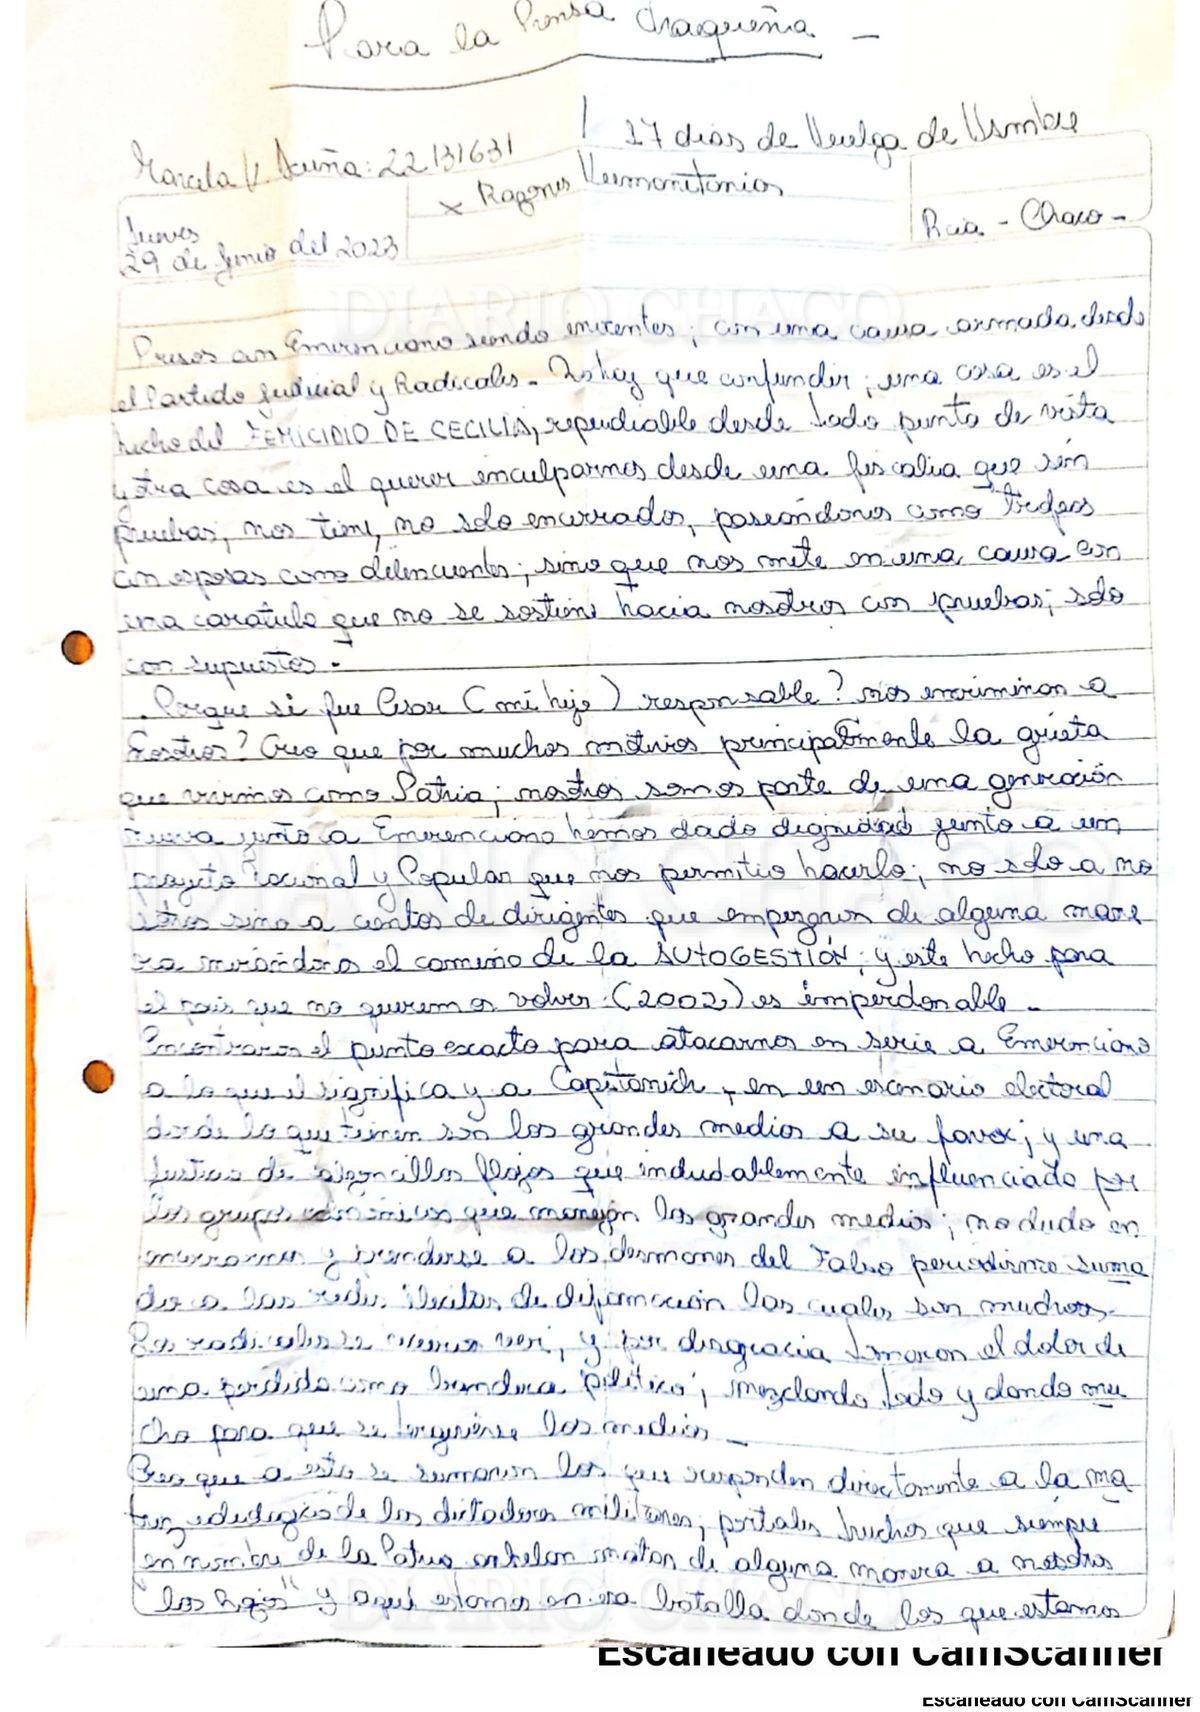 Para la Prensa Chaqueña -
Marcela V. Acuña: 22131631
17 dias de Huelga de Hambre
x Razones Humanitarias
Jueves
29 de Junio del 2023
Rcia - Chaco -
DIARIO CHACO
Presos con Emerenciano siendo inocentes; con una causa armada desde
el Partido Judicial y Radicales - No hay que confundir; una cosa es el
hecho del FEMICIDIO DE CECILIA, repudiable desde todo punto de vista
y otra cosa es el querer inculparnos desde una fiscalia que sin
pruebas, nos tiene, no solo encerrados, paseándonos como trofeos
con esposas como delincuentes; sino que nos mete en una causa con
una caratula que no se sostiene hacia nosotros con pruebas; solo
con supuestos -
. Porque si fue Cesar (mi hijo) responsable? nos incriminan a
Nosotros? Creo que por muchos motivos principalmente la grieta
que vivimos como Patria; nosotros somos parte de una generación
nueva junto a Emerenciano hemos dado dignidad junto a un
proyecto Nacional y Popular que nos permitio hacerlo; no solo a no
sotros sino a cientos de dirigentes que empezaron de alguna mane
ra mirándonos el camino de la AUTOGESTIÓN; y este hecho para
el pais que no queremos volver (2002) es imperdonable -
Encontraron el punto exacto para atacarnos en serie a Emerenciano
a lo que el significa y a Capitanich, en un escenario electoral
donde lo que tienen son los grandes medios a su favor; y una
Justicia de calzoncillos flojos que indudablemente influenciado por
los grupos económicos que manejan los grandes medios; no dudo en
encerrarnos y rendirse a los desmanes del Falso periodismo suma
do a las redes ilicitas de difamación las cuales son muchas -
Los radicales se hicieron ver; y por desgracia tomaron el dolor de
una perdida como bandera politica; mezclando todo y dando mu
cho para que se tergiverse los medios -
Creo que a esto se sumaron los que responden directamente a la ma
triz ideologica de los dictadores militares; portales truchos que siempre
en nombre de la Patria anhelan matar de alguna manera a nosotros
"los Rojos" y aquí estamos en esa batalla donde los que estamos
DIARIO CHACO
Escaneado con CamScanner
Escaneado con CamScanner